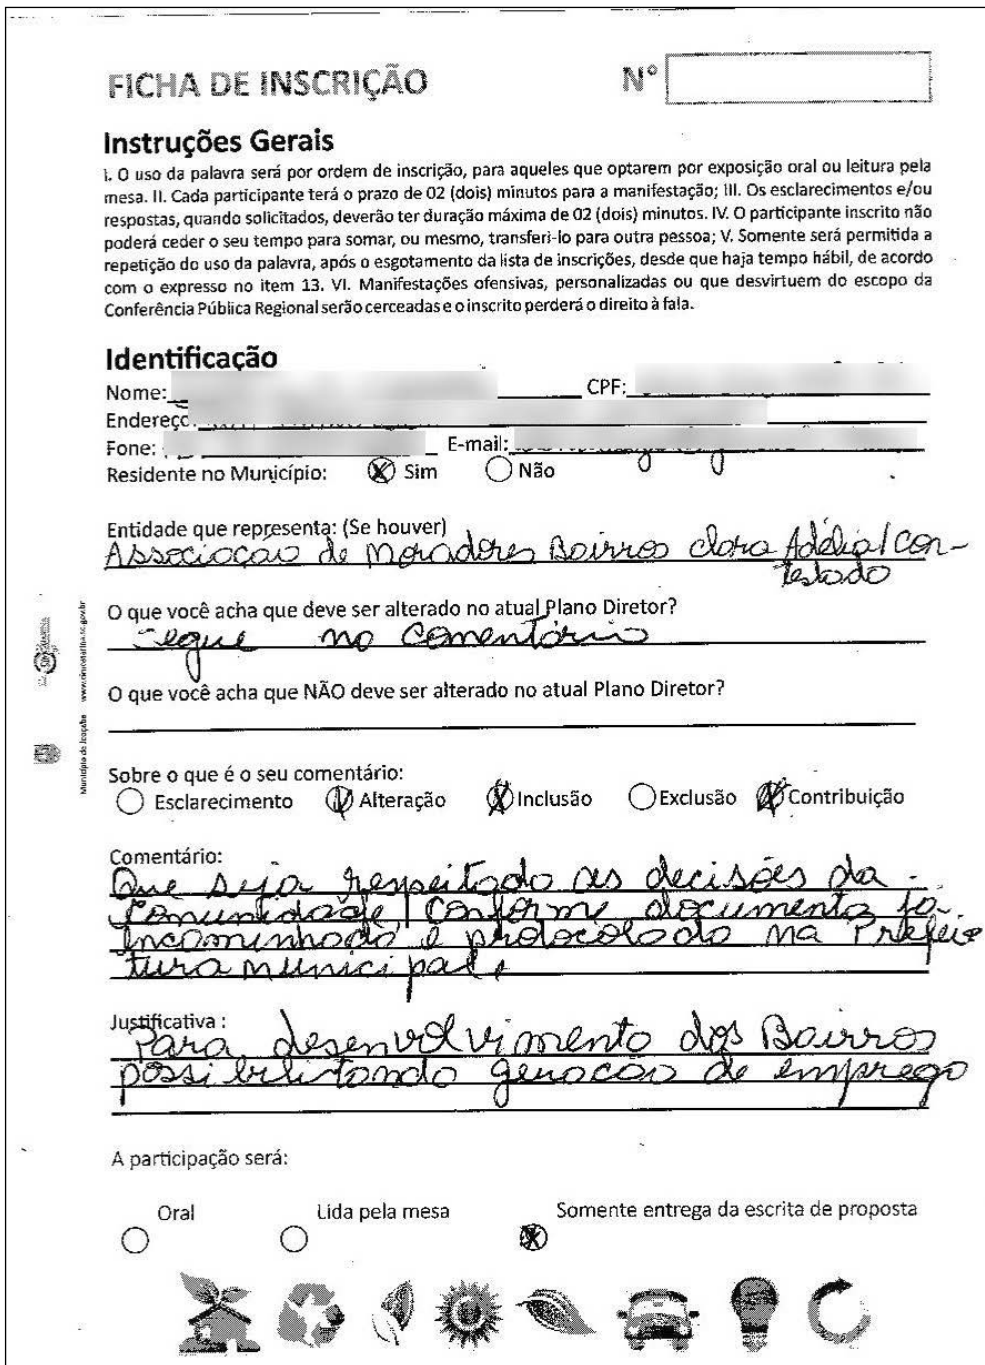 FICHA DE INSCRIÇÃO
N°
Instruções Gerais
I. O uso da palavra será por ordem de inscrição, para aqueles que optarem por exposição oral ou leitura pela
mesa. II. Cada participante terá o prazo de 02 (dois) minutos para a manifestação; III. Os esclarecimentos e/ou
respostas, quando solicitados, deverão ter duração máxima de 02 (dois) minutos. IV. O participante inscrito não
poderá ceder o seu tempo para somar, ou mesmo, transferi-lo para outra pessoa; V. Somente será permitida a
repetição do uso da palavra, após o esgotamento da lista de inscrições, desde que haja tempo hábil, de acordo
com o expresso no item 13. VI. Manifestações ofensivas, personalizadas ou que desvirtuem do escopo da
Conferência Pública Regional serão cerceadas e o inscrito perderá o direito à fala.
Identificação
Nome: CPF:
Endereço:
Fone: E-mail:
Residente no Município: Sim Não
Entidade que representa: (Se houver)
Associacao de Moradores Bairros Clara Adélia/Con-
testado
O que você acha que deve ser alterado no atual Plano Diretor?
segue no Comentário
O que você acha que NÃO deve ser alterado no atual Plano Diretor?
Sobre o que é o seu comentário:
Esclarecimento Alteração Inclusão Exclusão Contribuição
Comentário:
Que seja respeitado as decisões da
comunidade, conforme documento já
incaminhado e protocolado na Prefei-
tura municipal.
Justificativa :
Para desenvolvimento dos Bairros
possibilitando geracão de emprego
A participação será:
Oral Lida pela mesa Somente entrega da escrita de proposta
Município de Joaçaba